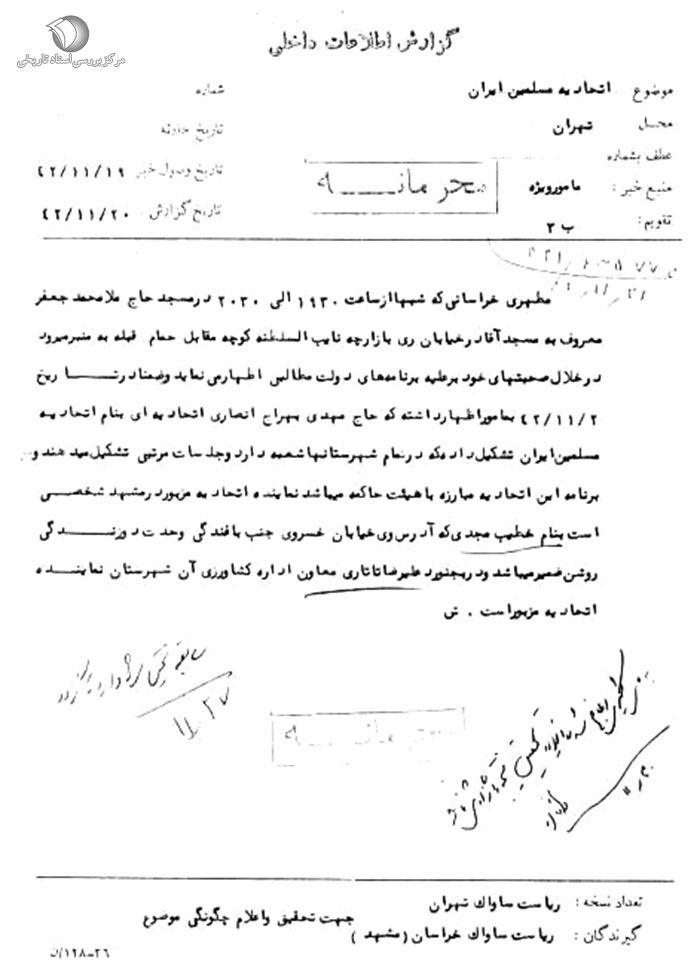 مرکز بررسی اسناد تاریخی
گزارش اطلاعات داخلی
موضوع : اتحادیه مسلمین ایران
شماره
محل : تهران
تاریخ حادثه
عطف بشماره
تاریخ وصول خبر ۴۲/۱۱/۱۹
منبع خبر : مامورویژه
محرمانــــه
تاریخ گزارش ۴۲/۱۱/۲۰
تقویم : ب ۳
مطهری خراسانی که شبها از ساعت ۱۹۳۰ الی ۲۰۳۰ در مسجد حاج ملا محمد جعفر
معروف به مسجد آقا در خیابان ری بازارچه نایب السلطنه کوچه مقابل حمام قبله به منبر میرود
در خلال صحبتهای خود بر علیه برنامه‌های دولت مطالبی اظهار می نماید و ضمنا در تــا ریخ
۴۲/۱۱/۲ بمامور اظهار داشته که حاج مهدی بهراج انصاری اتحادیه ای بنام اتحادیه
مسلمین ایران تشکیل داده که در تمام شهرستانها شعبه دارد و جلسات مرتبی تشکیل میدهند و
برنامه این اتحادیه مبارزه با هیئت حاکمه میباشد نماینده اتحادیه مزبور در مشهد شخصـــی
است بنام خطیب مجدی که آدرس وی خیابان خسروی جنب بافندگی وحدت دوزنــدگی
روشن ضمیر میباشد و در بجنورد علیرضا تاتاری معاون اداره کشاورزی آن شهرستان نماینــده
اتحادیه مزبور است . ش
سابقه
۱۱/۲۷
محرمانــه
تعداد نسخه : ریاست ساواک تهران
جهت تحقیق و اعلام چگونگی موضوع
گیرندگان : ریاست ساواک خراسان (مشهد )
۲۶-۱۲۸/ن